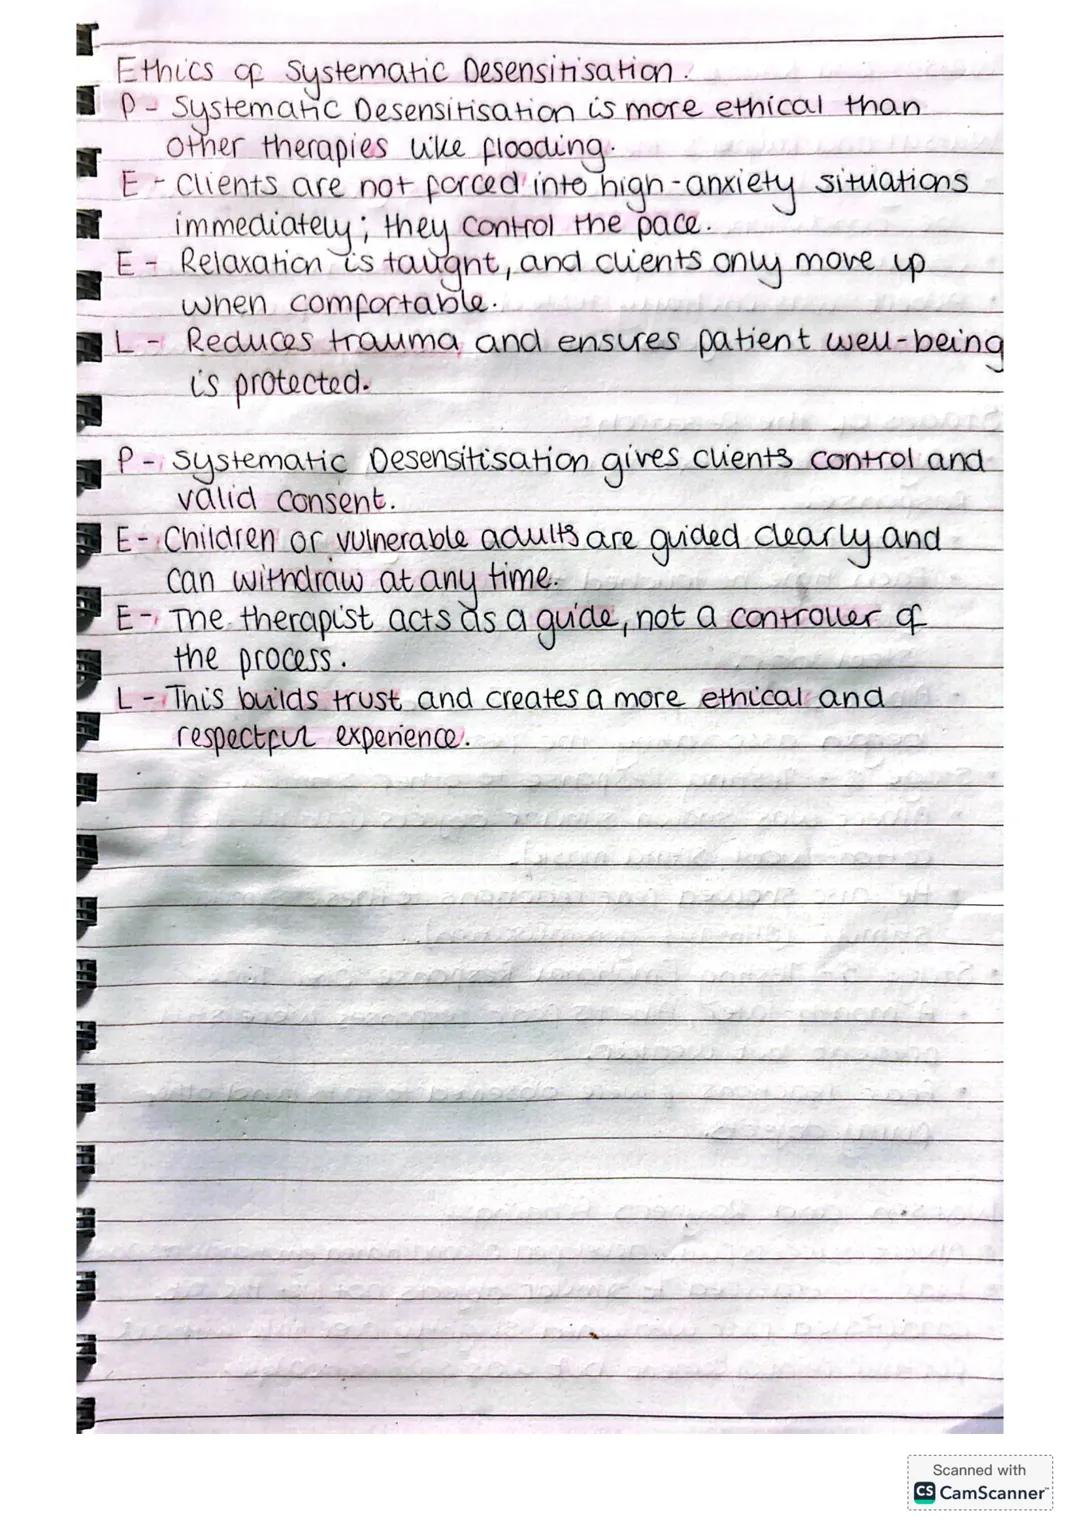 Ethics of Systematic Desensitisation.
P - Systematic Desensitisation is more ethical than
other therapies like flooding.
E - Clients are not forced into high-anxiety situations
immediately; they control the pace.
E - Relaxation is taught, and clients only move up
when comfortable.
L - Reduces trauma and ensures patient well-being
is protected.
P - Systematic Desensitisation gives clients control and
valid consent.
E - Children or vulnerable adults are guided clearly and
can withdraw at any time.
E - The therapist acts as a guide, not a controller of
the process.
L - This builds trust and creates a more ethical and
respectful experience.
Scanned with
CS CamScanner